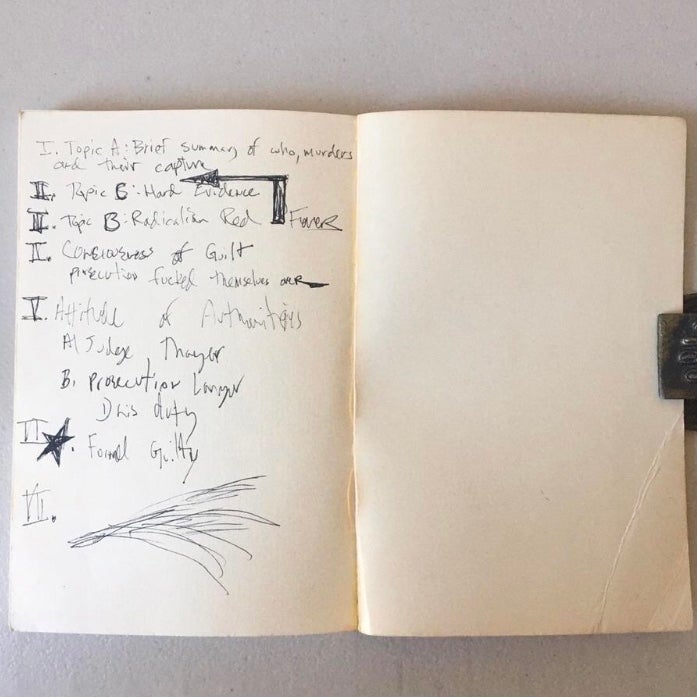 I. Topic A: Brief summary of who, murders
and their capture
II. Topic B: Hard Evidence
III. Topic B: Radicalism Red Fever
IV. Consciousness of Guilt
prosecution fucked themselves over
V. Attitude of Authorities
A) Judge Thayer
B. prosecution Lawyer
D his duty
VI. Found Guilty
VII.